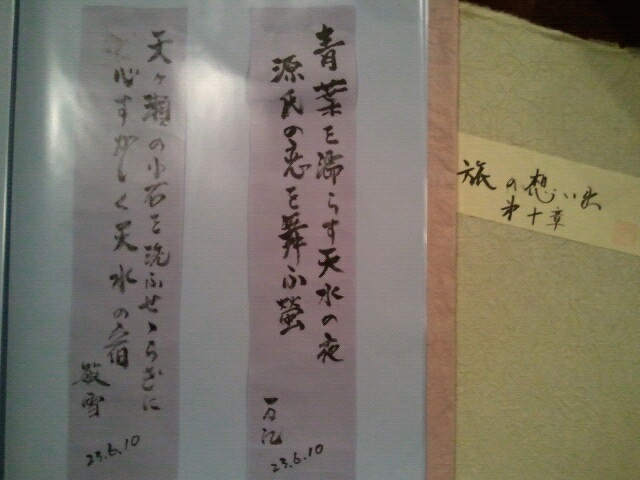 旅の想い出
第十章
青葉を濡らす天水の夜
源氏の恋を舞ふ蛍
23.6.10
天ヶ瀬の小石を洗ふせゝらぎに
心すがしく天水の宿
敏雪
23.6.10